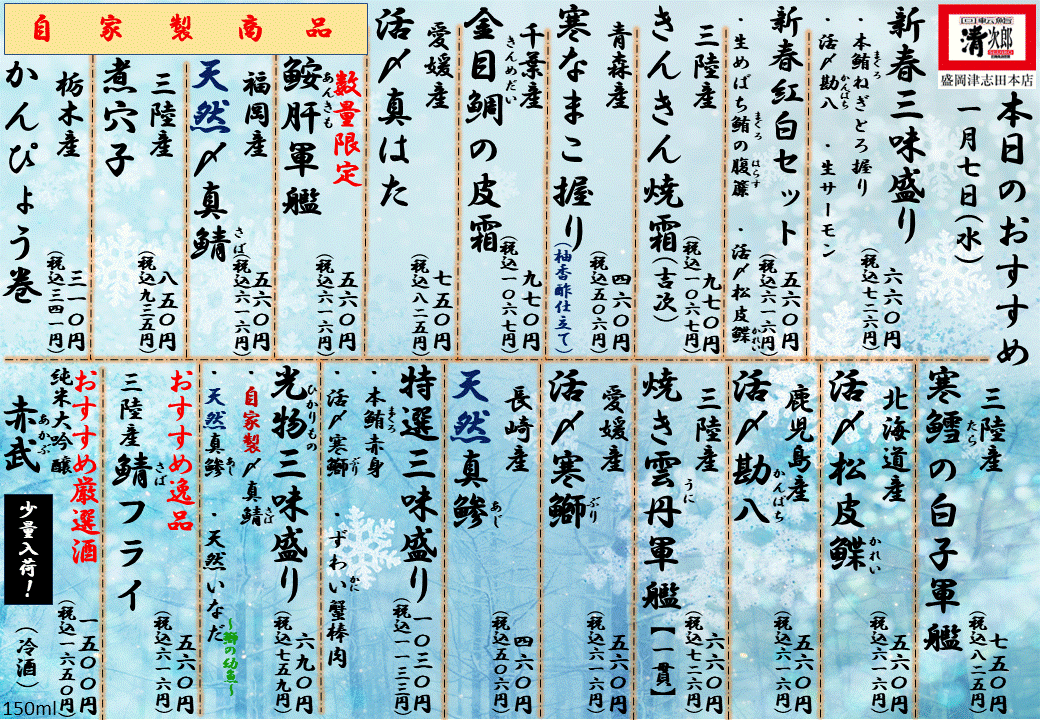 回転鮨
清次郎
盛岡津志田本店
本日のおすすめ
一月七日(水)
新春三味盛り
・本鮪ねぎとろ握り
まぐろ
・活〆勘八
かんぱち
・生サーモン
六六〇円
(税込七二六円)
新春紅白セット
・生めばち鮪の腹簾
まぐろ
はらす
・活〆松皮鰈
かれい
五六〇円
(税込六一六円)
三陸産
きんきん焼霜(吉次)
九七〇円
(税込一〇六七円)
青森産
寒なまこ握り
(柚香酢仕立て)
四六〇円
(税込五〇六円)
千葉産
金目鯛の皮霜
きんめだい
九七〇円
(税込一〇六七円)
愛媛産
活〆真はた
七五〇円
(税込八二五円)
自家製商品
数量限定
鮟肝軍艦
あんきも
五六〇円
(税込六一六円)
福岡産
天然〆真鯖
さば
五六〇円
(税込六一六円)
三陸産
煮穴子
八五〇円
(税込九三五円)
栃木産
かんぴょう巻
三一〇円
(税込三四一円)
三陸産
寒鱈の白子軍艦
たら
七五〇円
(税込八二五円)
北海道産
活〆松皮鰈
かれい
五六〇円
(税込六一六円)
鹿児島産
活〆勘八
かんぱち
五六〇円
(税込六一六円)
三陸産
焼き雲丹軍艦【一貫】
うに
六六〇円
(税込七二六円)
愛媛産
活〆寒鰤
ぶり
五六〇円
(税込六一六円)
長崎産
天然真鯵
あじ
四六〇円
(税込五〇六円)
特選三味盛り
・本鮪赤身
まぐろ
・活〆寒鰤
ぶり
・ずわい蟹棒肉
かに
一〇三〇円
(税込一一三三円)
光物三味盛り
ひかりもの
・自家製〆真鯖
さば
・天然真鯵
あじ
・天然いなだ
~鰤の幼魚~
六九〇円
(税込七五九円)
おすすめ逸品
三陸産
鯖フライ
さば
五六〇円
(税込六一六円)
おすすめ厳選酒
純米大吟醸
赤武
あかぶ
少量入荷!
(冷酒)
一五〇〇円
(税込一六五〇円)
150ml